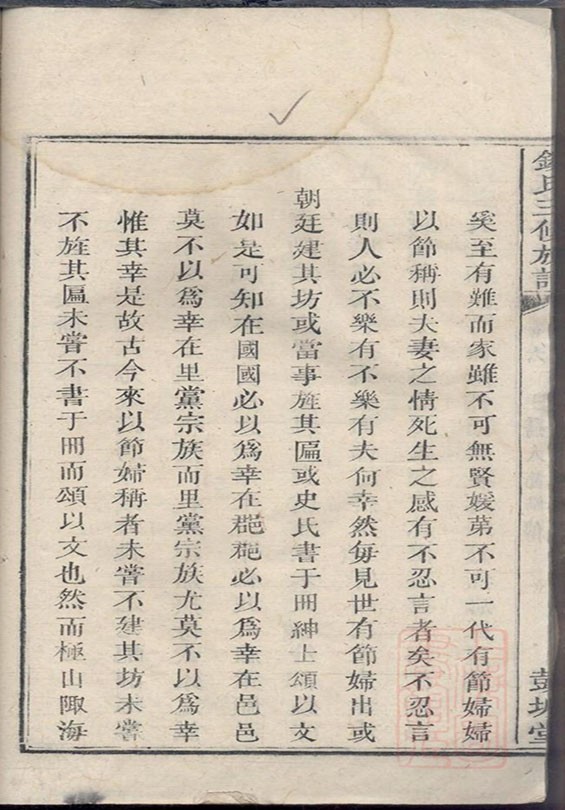 氏三修族譜
彭城堂
奚至有難而家雖不可無賢媛苐不可一代有節婦婦
以節稱則夫妻之情死生之感有不忍言者矣不忍言
則人必不樂有不樂有夫何幸然每見世有節婦出或
朝廷建其坊或當事旌其匾或史氏書于冊紳士頌以文
如是可知在國國必以爲幸在郡郡必以爲幸在邑邑
莫不以爲幸在里黨宗族而里黨宗族尤莫不以爲幸
惟其幸是故古今來以節婦稱者未嘗不建其坊未嘗
不旌其匾未嘗不書于冊而頌以文也然而極山陬海